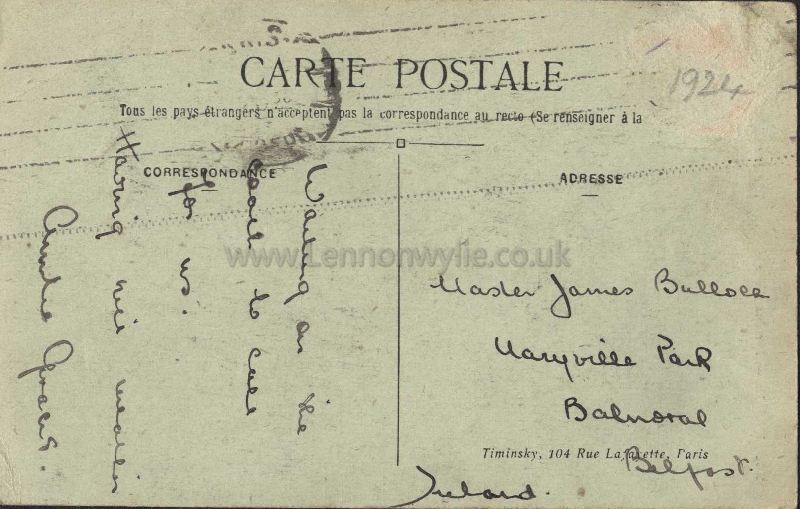 CARTE POSTALE
Tous les pays étrangers n'acceptent pas la correspondance au recto (Se renseigner à la
1924
CORRESPONDANCE
ADRESSE
Waiting on the
coach to call
for us.
Having nice weather
Grace.
www.Lennonwylie.co.uk
Master James Bullock
Maryville Park
Balmoral
Timinsky, 104 Rue Lafayette, Paris
Belfast.
Ireland.